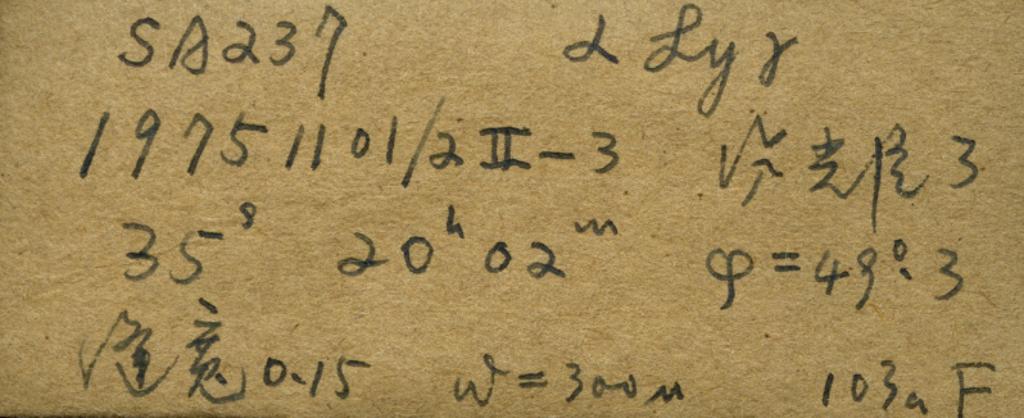 SA237 α Lyr
1975 11 01/2 II-3 光阶 3
35ˢ 20ʰ 02ᵐ φ=49°.3
缝宽 0.15 W=300μ 103a F